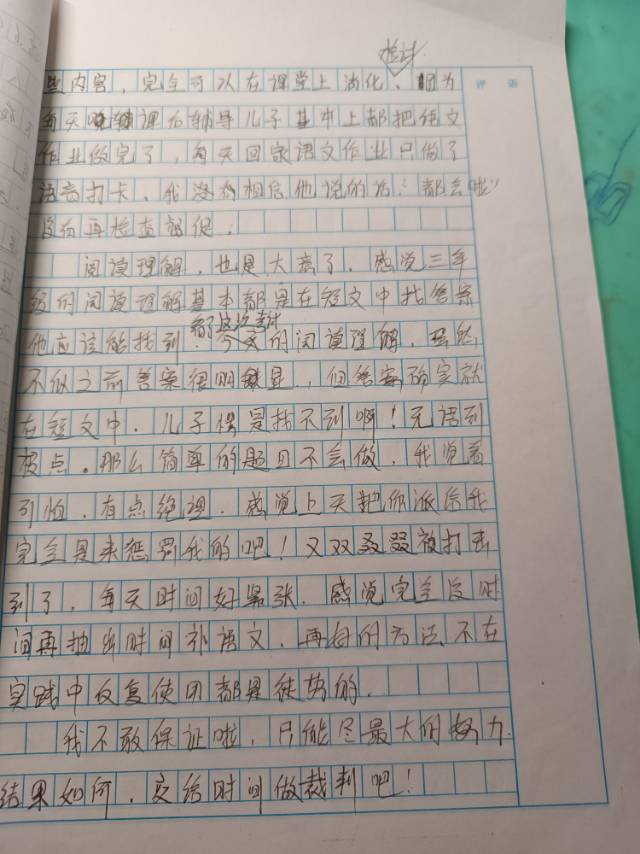 检讨
评 语
些内容,完全可以在课堂上消化、因为
每天晚辅课后辅导儿子基本上都把作文
作业做完了,每天回家语文作业只做了
语音打卡,我没有相信他说的话:都会啦"
没有再检查督促。
阅读理解,也是大离了.感觉三年
级的阅读理解基本都穿在短文中找答案
看了这次考试
他应该能找到.今天的阅读理解,虽然
不似之前答案很明显,但答案确实就
在短文中.儿子愣是找不到啊!无语到
极点。那么简单的题目不会做.我觉着
可怕.有点绝望.感觉上天把你派给我
完全是来惩罚我的吧!又双叒叕被打击
到了,每天时间好紧张.感觉完全没时
间再抽出时间补语文.再好的方法、不在
实践中反复使用都是徒劳的.
我不敢保证啦.只能尽最大的努力.
结果如何.交给时间做裁判吧!